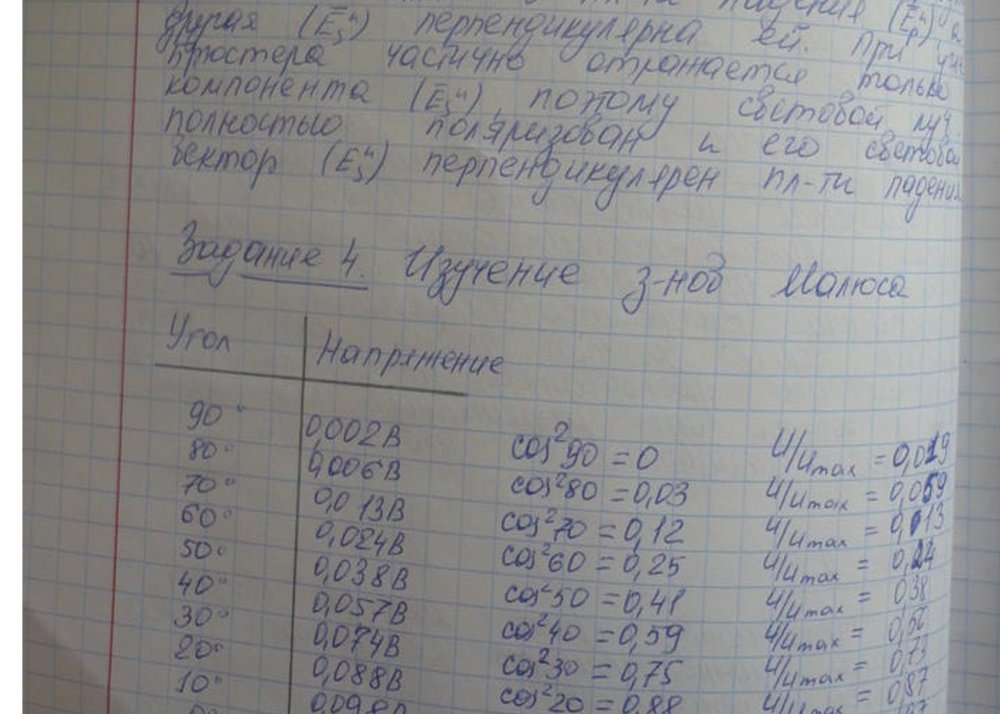 падения (Eрᴴ) и
другая (Esᴴ) перпендикулярна ей. При
простера частично отражается только
компонента (Esᴴ), поэтому световой луч
полностью поляризован и его световой
вектор (Esᴴ) перпендикулярен пл-ти падения
Задание 4. Изучение з-нов Малюса
Угол Напряжение
90° 0,002В cos²90 = 0 U/Umax = 0,019
80° 0,006В cos²80 = 0,03 U/Umax = 0,059
70° 0,013В cos²70 = 0,12 U/Umax = 0,13
60° 0,024В cos²60 = 0,25 U/Umax = 0,24
50° 0,038В cos²50 = 0,41 U/Umax = 0,38
40° 0,057В cos²40 = 0,59 U/Umax = 0,56
30° 0,074В cos²30 = 0,75 U/Umax = 0,73
20° 0,088В cos²20 = 0,88 U/Umax = 0,87
10° 0,098В